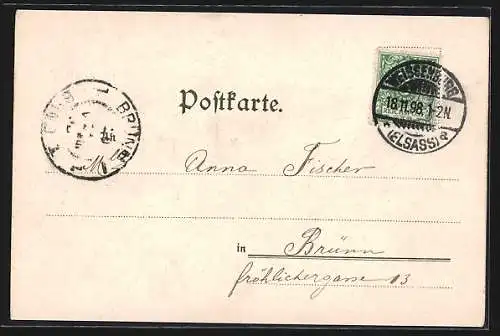 WEISSENBURG
18.11.98.1-2N.
(ELSASS) a
BRÜNN
Postkarte.
Anna Fischer
in Brünn
fröhlichergasse 13